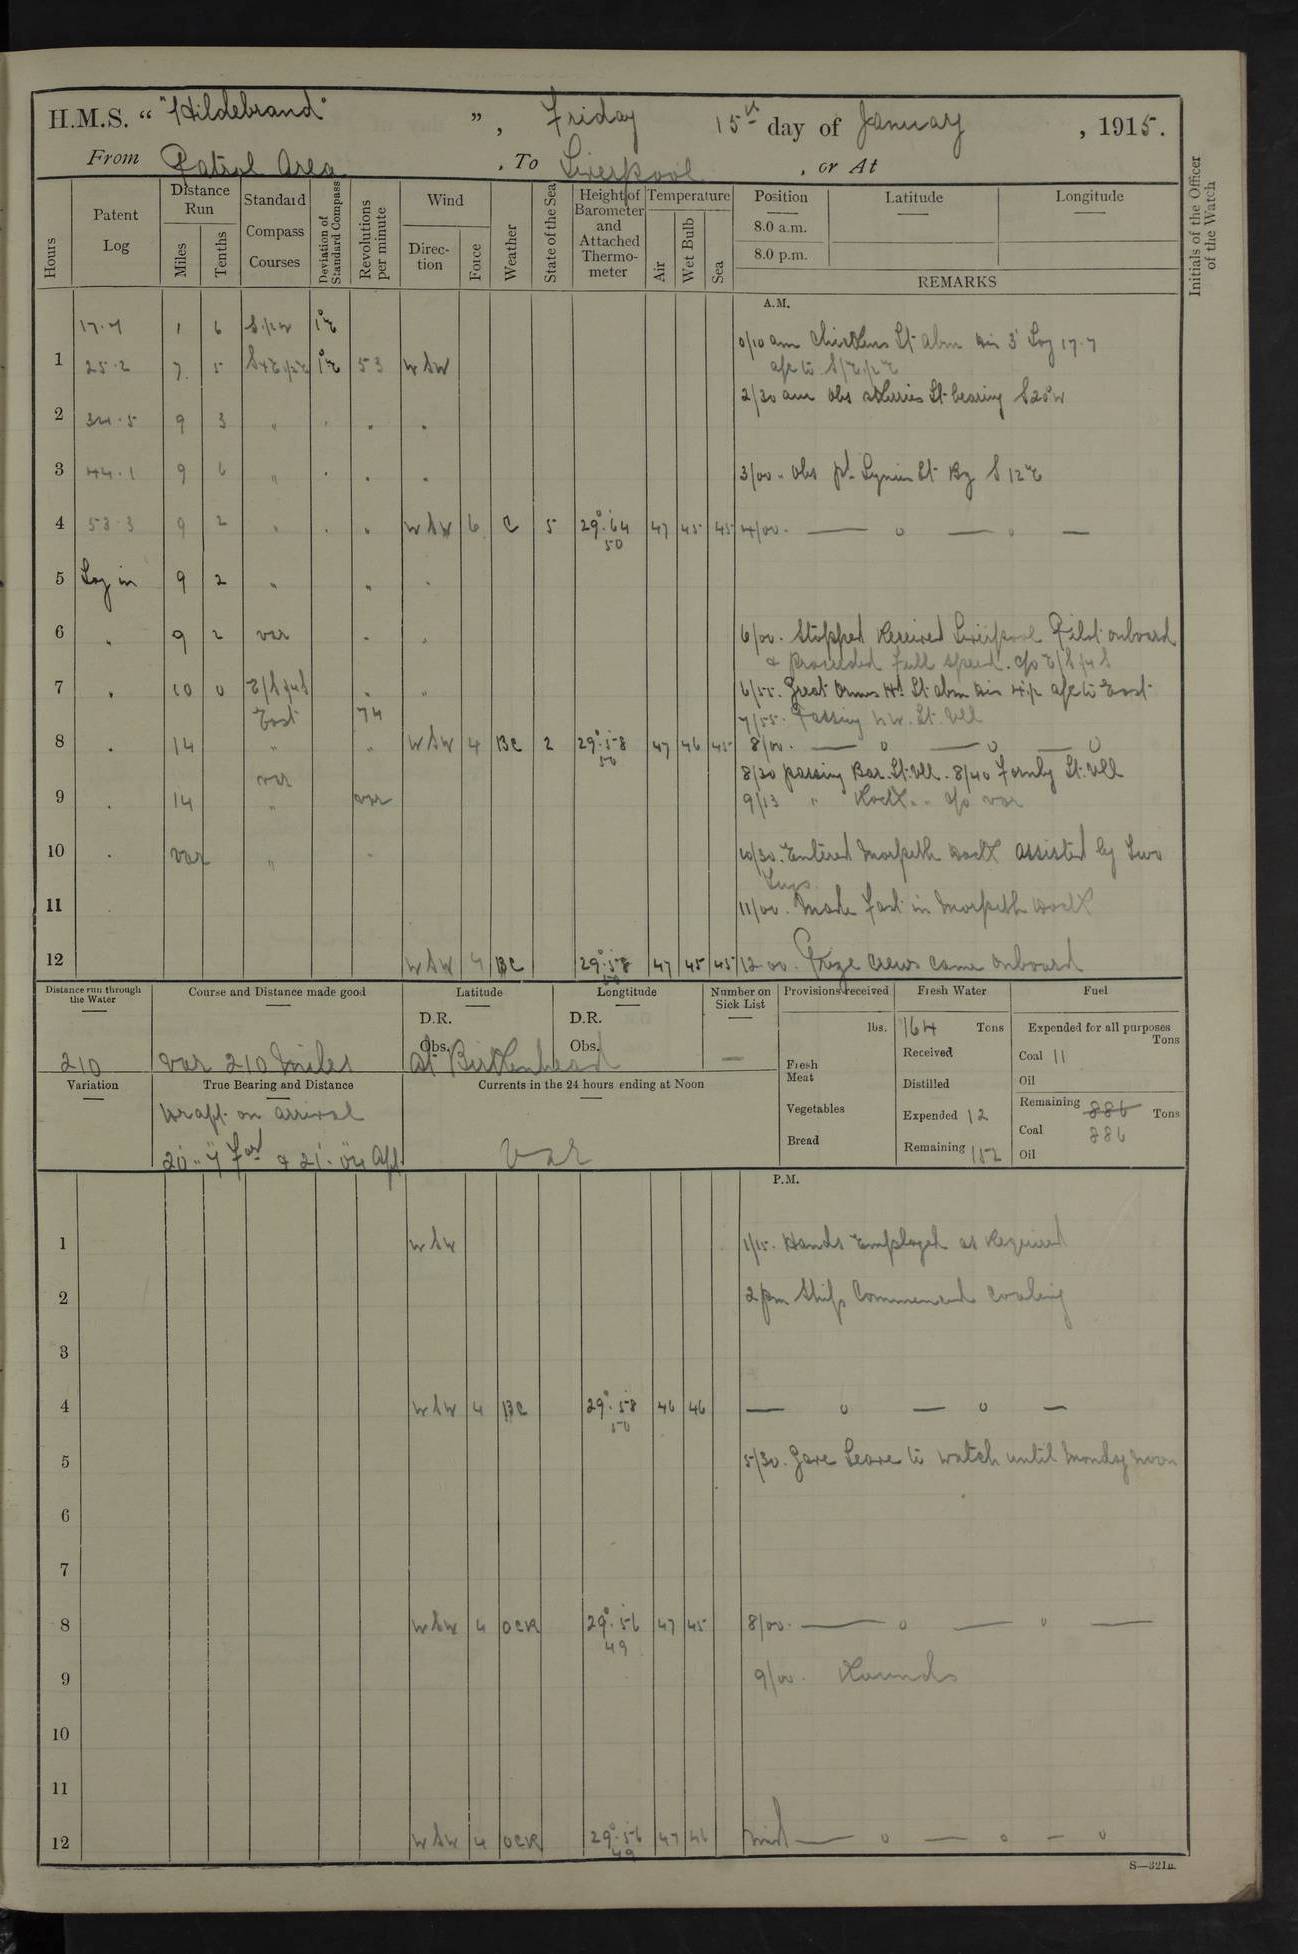 H.M.S. “ "Hildebrand" ” , Friday 15th day of January , 1915.
From Patrol Area , To Liverpool , or At
Hours
Patent Log
Distance Run
Miles
Tenths
Standard Compass Courses
Deviation of Standard Compass
Revolutions per minute
Wind
Direction
Force
Weather
State of the Sea
Height of Barometer and Attached Thermometer
Temperature
Air
Wet Bulb
Sea
Position
8.0 a.m.
8.0 p.m.
Latitude
Longitude
REMARKS
Initials of the Officer of the Watch
A.M.
17.7 1 6 1°E
0/10 am Chickens Lt abm dis 3' Log 17.7
1 25.2 7 5 1°E 53 WSW
a/c to
2/30 am Obs Skerries Lt bearing S20°W
2 34.5 9 3 " " " "
3 44.1 9 6 " " " "
3/00 " Obs Pt Lynus Lt Bg S 12°E
4 53.3 9 2 " " " WSW 6 C 5 29°.64 47 45 45 4/00.
50
5 Log in 9 2 " " "
6 " 9 2 var " "
6/00. Stopped Received Liverpool Pilot onboard
& proceeded full speed.
7 " 10 0 " "
6/55. Great Ormes Hd Lt abm dis a/c to East
East 74
7/55. Passing N.W. Lt. Vll
8 " 14 " " WSW 4 BC 2 29°.58 47 46 45 8/00.
50
var
8/30 passing Bar Lt. Vll. 8/40 Formby Lt. Vll
9 " 14 " var
9/13 " Rock " " c/o var
10 " var " "
10/30. Entered Morpeth Dock assisted by Two
Tugs.
11 11/00. Made fast in Morpeth Dock
12 WSW 4 BC 29°.58 47 45 45 12.00. Prize crews came onboard
50
Distance run through the Water
210
Course and Distance made good
var 210 miles
Latitude
D.R.
Obs.
Longtitude
D.R.
Obs.
At Birkenhead
Number on Sick List
—
Provisions received
lbs.
Fresh Meat
Vegetables
Bread
Fresh Water
164 Tons
Received
Distilled
Expended 12
Remaining 152
Fuel
Expended for all purposes
Tons
Coal 11
Oil
Remaining 886 Tons
Coal 886
Oil
Variation
True Bearing and Distance
Dr aft on arrival
20'. 4" For'd & 21'. 04" Aft
Currents in the 24 hours ending at Noon
var
P.M.
1 WSW 1/15. Hands Employed as Required
2 2 pm Ship Commenced coaling
3
4 WSW 4 BC 29°.58 46 46
50
5 5/30. Gave Leave to watch until Monday noon
6
7
8 WSW 4 OCR 29°.56 47 45 8/00.
49
9 9/00. Rounds
10
11
12 WSW 4 OCR 29°.56 47 46 Mid
49
S—321a.